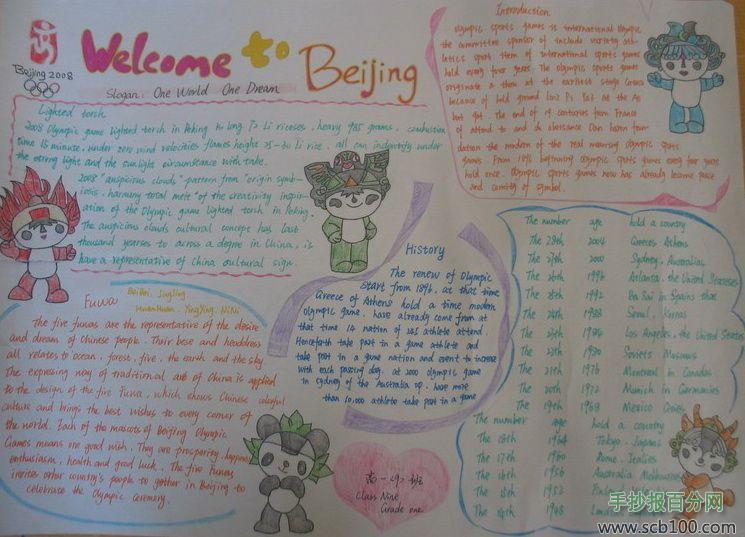 Beijing 2008
Welcome to Beijing
Slogan: One World One Dream
Lighted torch
2008 Olympic game lighted torch in Peking Hu long 72 Li riceses, heavy 985 grams, combustion
time 15 minute, under zero wind velocities flames height 25-30 Li rice, all can indentify under
the strong light and the sunlight circumstance with take.
2008 "auspicious clouds" pattern from "origin symb-
iosis, harmony total melt" of the creativity inspir-
ation of the Olympic game lighted torch in Peking.
The auspicious clouds cultural concept has last
thousand yearses to across a degree in China, is
have a representative of China cultural sign.
Introduction
Olympic sports games is international olympic
the committee sponsor of include variety ath-
letics sport item of international sports games
hold every four years. The olympic sports games
originate a them at the earliest stage Greece
because of hold ground
The end of 19 centuries from France
of attend to and
dation the modern of the real meaning olympic sports
games. From 1896 beginning olympic sports games every four years
hold once. Olympic sports games now has already become peace
and amity of symbol.
Fuwa
BeiBei, JingJing
HuanHuan, YingYing, NiNi
The five fuwas are the representative of the desire
and dream of Chinese people. Their bese and headdress
all relates to ocean, forest, five, the earth and the sky
The expressing way of traditional art of China is applied
to the design of the five Fuwa, which shows Chinese colorful
culture and brings the best wishes to every corner of
the world. Each of the mascots of Beijing Olympic
Games means one good wish. They are prosperity, happiness
enthusiasm, health and good luck. The five fuwas
invites other country's people to gather in Beijing to
celebrate the Olympic Ceremony.
History
The renew of Olympic
start from 1896, at that time
Greece of Athens hold a time modern
olympic game, have already come from at
that time 14 nation of 245 athlete attend.
Henceforth take part in a game athlete and
take part in a game nation and event to increase
with each passing day. at 2000 olympic game
in Sydney of the Australia op, have more
than 10,000 athlete take part in a game
高一(9)班
Class Nine
Grade one
The number age hold a country
The 28th 2004 Greeces Athens
The 27th 2000 Sydney, Australias
The 26th 1996 Atlanta, the United Stateses
The 25th 1992 Ba Sai in Spains that
The 24th 1988 Seoul, Koreas
The 23th 1984 Los Angeles, the United States
The 22th 1980 Soviets Moscows
The 21th 1976 Montreal in Canadas
The 20th 1972 Munich in Germanies
The 19th 1968 Mexico Cities
The number age hold a country
The 18th 1964 Tokyo, Japans
The 17th 1960 Rome, Italies
The 16th 1956 Australia Melbournes
The 15th 1952
The 14th 1948
手抄报百分网
www.scb100.com